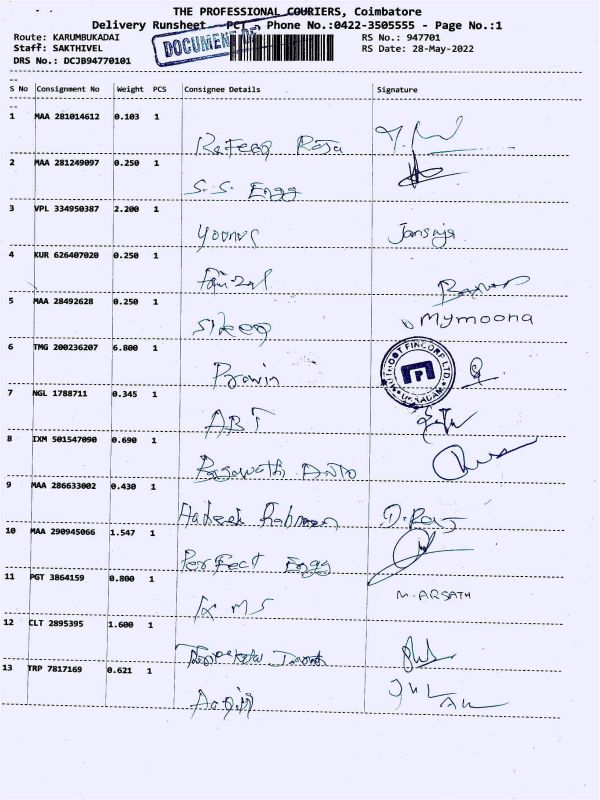 THE PROFESSIONAL COURIERS, Coimbatore
Delivery Runsheet - PCT - Phone No.:0422-3505555 - Page No.:1
Route: KARUMBUKADAI RS No.: 947701
Staff: SAKTHIVEL RS Date: 28-May-2022
DRS No.: DCJB94770101
DOCUMENT OF
S No Consignment No Weight PCS Consignee Details Signature
1 MAA 281014612 0.103 1
Rafeeq Raja
2 MAA 281249097 0.250 1
S.S. Engg
3 VPL 334950387 2.200 1
Younus Jansija
4 KUR 626407020 0.250 1
Faizal
5 MAA 28492628 0.250 1
Mymoona
6 TMG 200236207 6.800 1
Prawin
MUTHOOT FINCORP LTD. UKKADAM
7 NGL 1788711 0.345 1
ABT
8 IXM 501547090 0.690 1
Auto
9 MAA 286633002 0.430 1
Rahman D.Raj
10 MAA 290945066 1.547 1
Perfect Engg
11 PGT 3864159 0.800 1
MS M.ARSATH
12 CLT 2895395 1.600 1
13 TRP 7817169 0.621 1